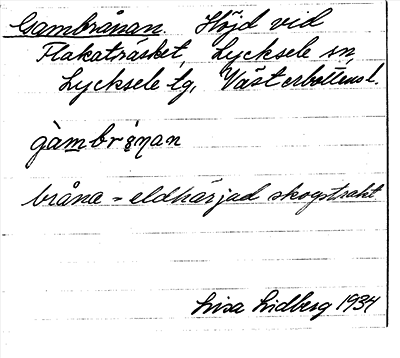 Gambrånan. Höjd vid
Flakaträsket, Lycksele sn,
Lycksele lg, Västerbottens l.
bråna = eldhärjad skogstrakt
Lisa Lidberg 1934